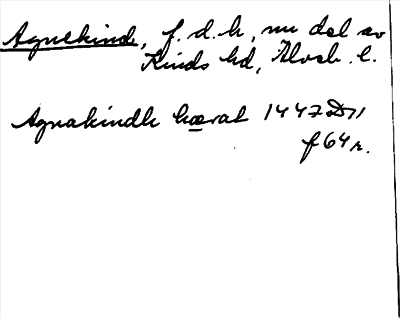 Agnekind, f. d. h, nu del av
Kinds hd, Älvsb. l.
Agnakindh hærat 1447 D11
f 64 r.